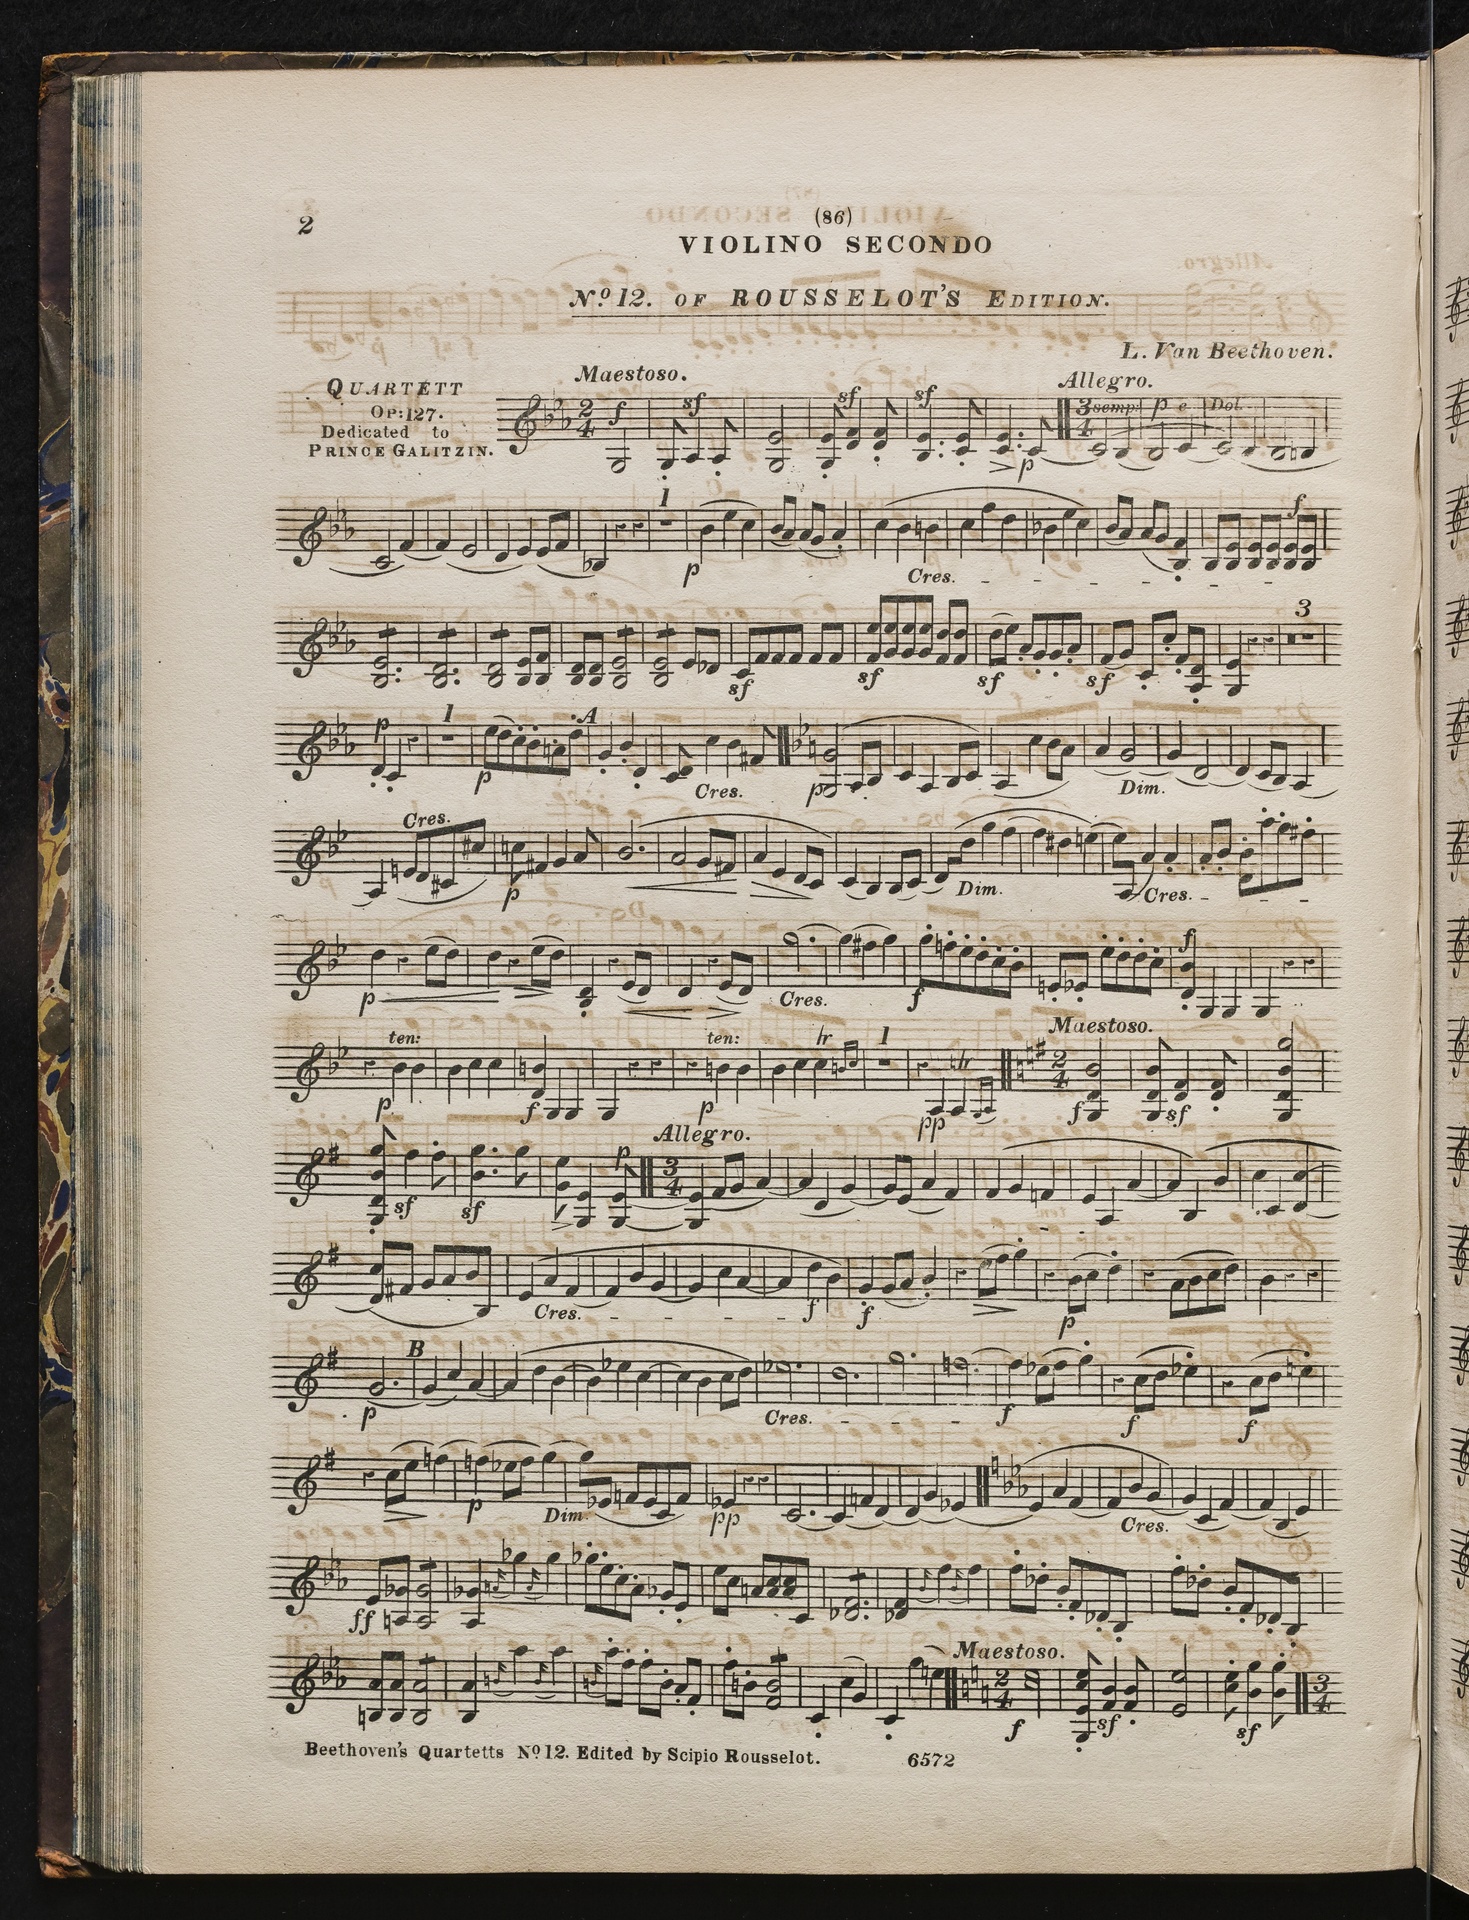 2
(86)
VIOLINO SECONDO
No 12. OF ROUSSELOT'S EDITION.
L. Van Beethoven.
QUARTETT
OP: 127.
Dedicated to
PRINCE GALITZIN.
Maestoso. Allegro.
2 4 f sf sf sf > p 3 4 semp: p e Dol.
1 p Cres. f
sf sf sf sf 3
p 1 p A Cres. p Dim.
Cres. p Dim. Cres.
p Cres. f f
ten: ten: tr 1 tr Maestoso.
p f p pp 2 4 f sf
Allegro.
sf sf p 3 4
Cres. f f p
B
p Cres. f f f
p Dim. pp Cres.
ff
Maestoso.
2 4 f sf sf 3 4
Beethoven's Quartetts No 12. Edited by Scipio Rousselot. 6572